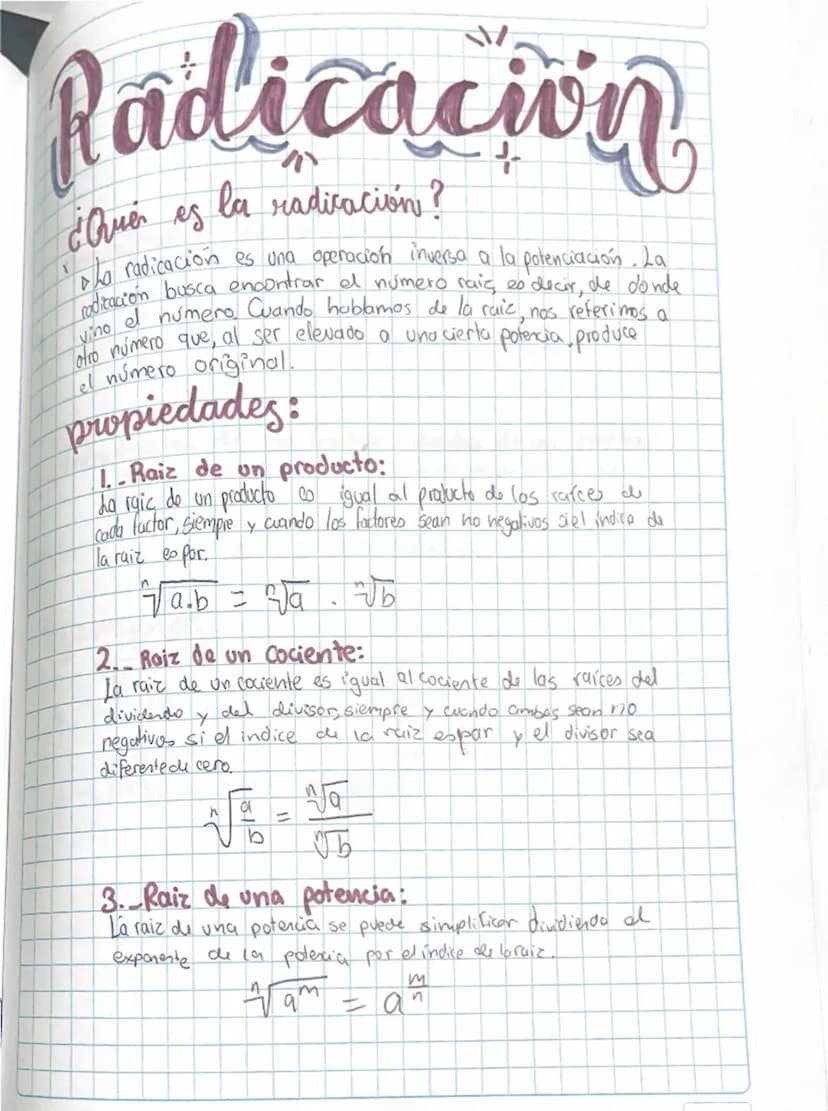 Radicación
¿Qué es la radicación?
La radicación es una operación inversa a la potenciación. La
radicación busca encontrar el número raíz, es decir, de dónde
vino el número. Cuando hablamos de la raíz, nos referimos a
otro número que, al ser elevado a una cierta potencia, produce
el número original.
propiedades:
1.- Raiz de un producto:
La raíz de un producto es igual al producto de las raíces de
cada factor, siempre y cuando los factores sean no negativos si el índice de
la raiz es par.
ⁿ√a.b = ⁿ√a . ⁿ√b
2.- Raiz de un cociente:
La raiz de un cociente es igual al cociente de las raíces del
dividendo y del divisor, siempre y cuando ambos sean no
negativos si el indice de la raiz es par y el divisor sea
diferente de cero.
ⁿ√a/b = ⁿ√a / ⁿ√b
3.- Raiz de una potencia:
La raiz de una potencia se puede simplificar dividiendo el
exponente de la potencia por el índice de la raiz.
ⁿ√aᵐ = a^m/n